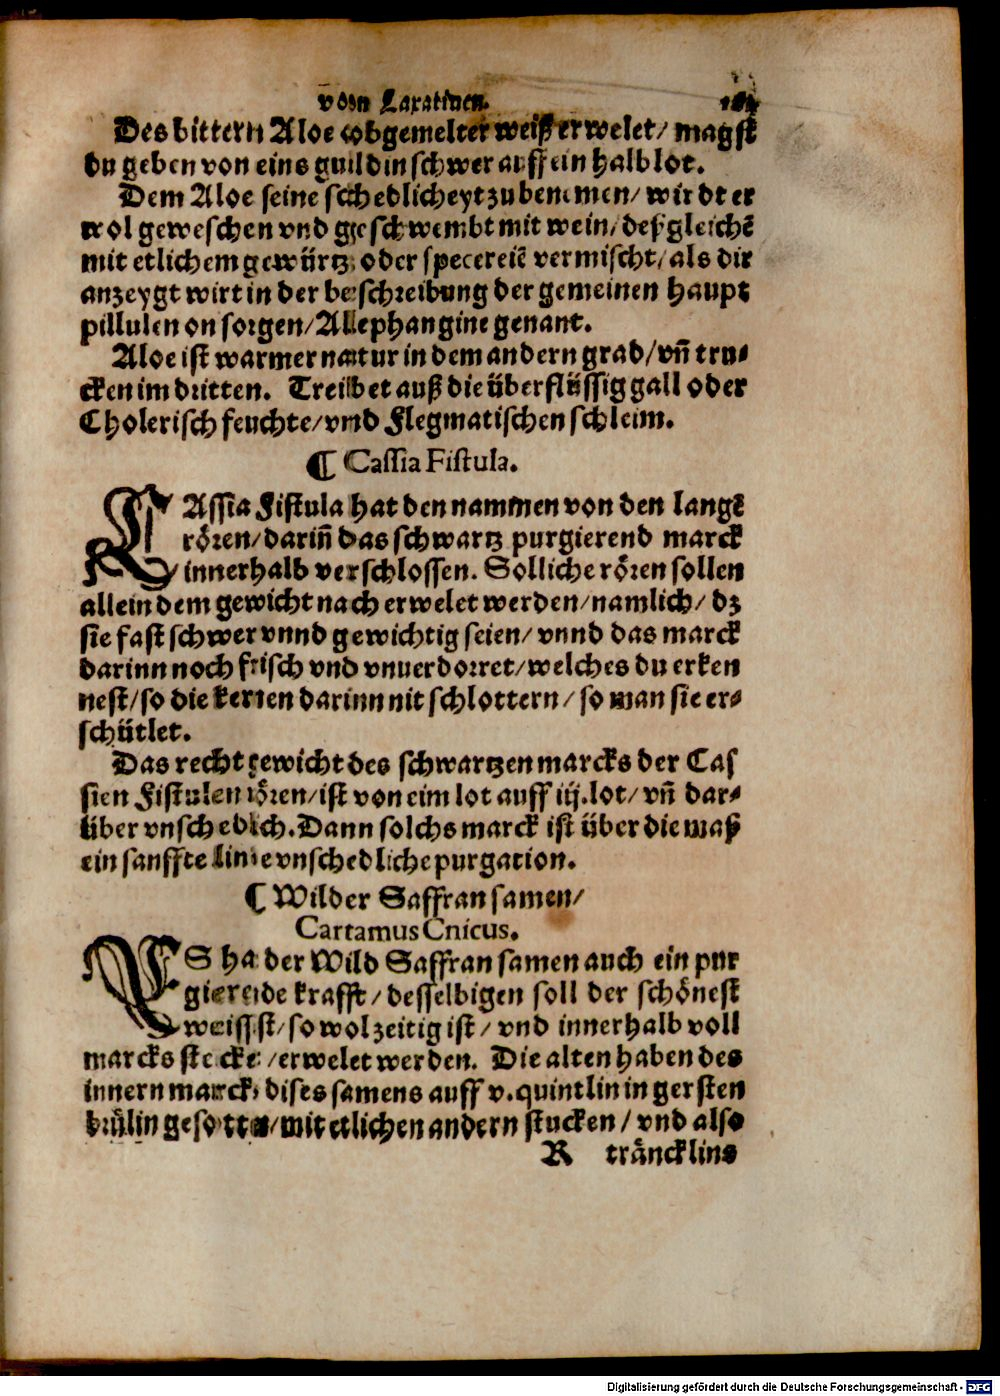 vom Laxatiuen.
Des bittern Aloe obgemelter weiß erwelet/ magst
du geben von eins guldin schwer auff ein halb lot.
Dem Aloe seine schedlicheyt zubenemen/ wirdt er
wol geweschen vnd geschwembt mit wein/ deßgleichē
mit etlichem gewürtz oder specereiē vermischt/ als dir
anzeygt wirt in der beschreibung der gemeinen haupt
pillulen on sorgen/ Allephangine genant.
Aloe ist warmer natur in dem andern grad/ vñ tru-
cken im dritten. Treibet auß die überflüssig gall oder
Cholerisch feuchte/ vnd Flegmatischen schleim.
¶ Cassia Fistula.
CAssia Fistula hat den nammen von den langē
rören/ dariñ das schwartz purgierend marck
innerhalb verschlossen. Solliche rören sollen
allein dem gewicht nach erwelet werden/ namlich/ dz
sie fast schwer vnnd gewichtig seien/ vnnd das marck
darinn noch frisch vnd vnuerdorret/ welches du erken
nest/ so die kernen darinn nit schlottern/ so man sie er-
schütlet.
Das recht gewicht des schwartzen marcks der Cas
sien Fistulen rören/ ist von eim lot auff iij. lot/ vñ dar-
über vnschedlich. Dann solchs marck ist über die maß
ein sanffte linde vnschedliche purgation.
¶ Wilder Saffran samen/
Cartamus Cnicus.
ES hat der Wild Saffran samen auch ein pur
gierende krafft/ desselbigen soll der schönest
weissist/ so wol zeitig ist/ vnd innerhalb voll
marcks stecket/ erwelet werden. Die alten haben des
innern marcks dises samens auff v. quintlin in gersten
brülin gesotten/ mit etlichen andern stucken/ vnd also
R träncklins
Digitalisierung gefördert durch die Deutsche Forschungsgemeinschaft - DFG